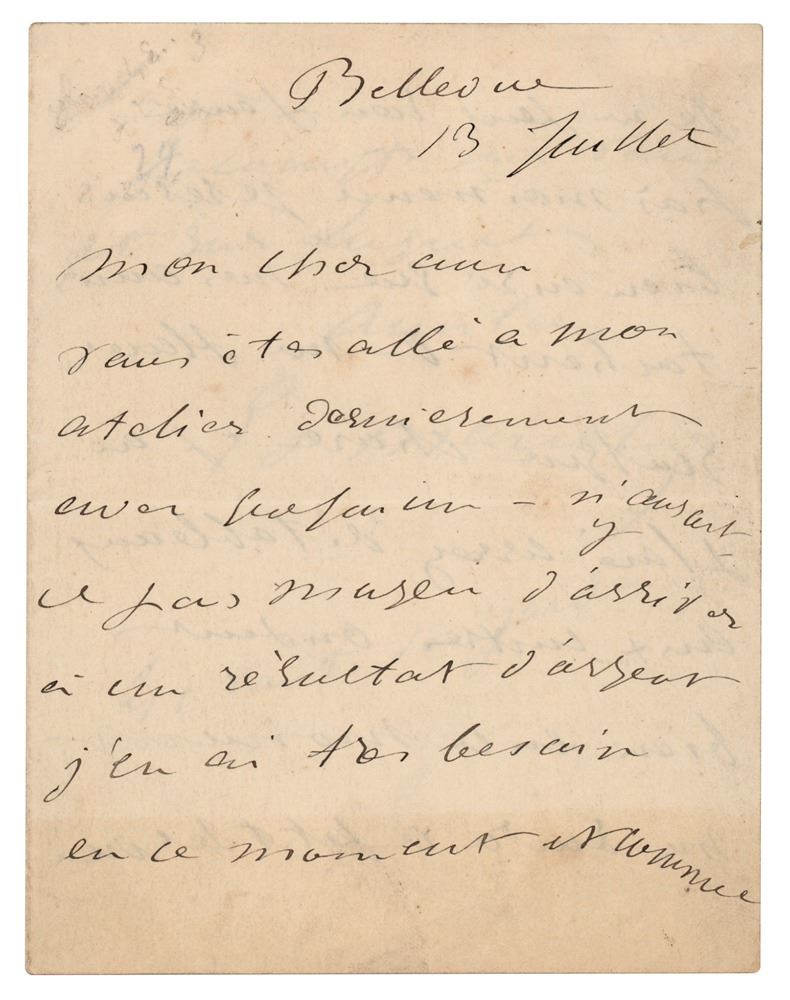 Bellevue
13 Juillet
mon cher ami
vous êtes allé a mon
atelier dernierement
avec
n'aurait
y
ce pas moyen d'arriver
à un résultat d'argent
j'en ai tres besoin
en ce moment et comme
24